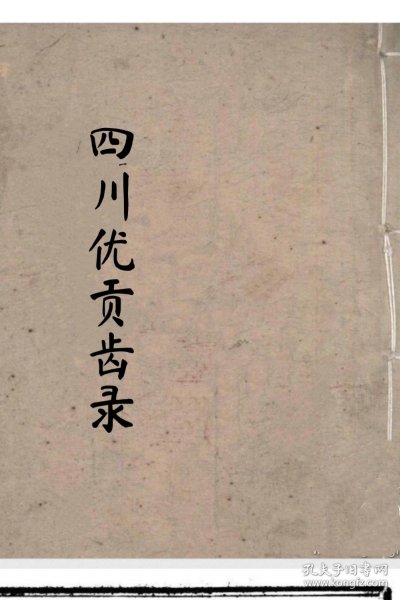 四川优贡齿录
孔夫子旧书网
www.kongfz.com